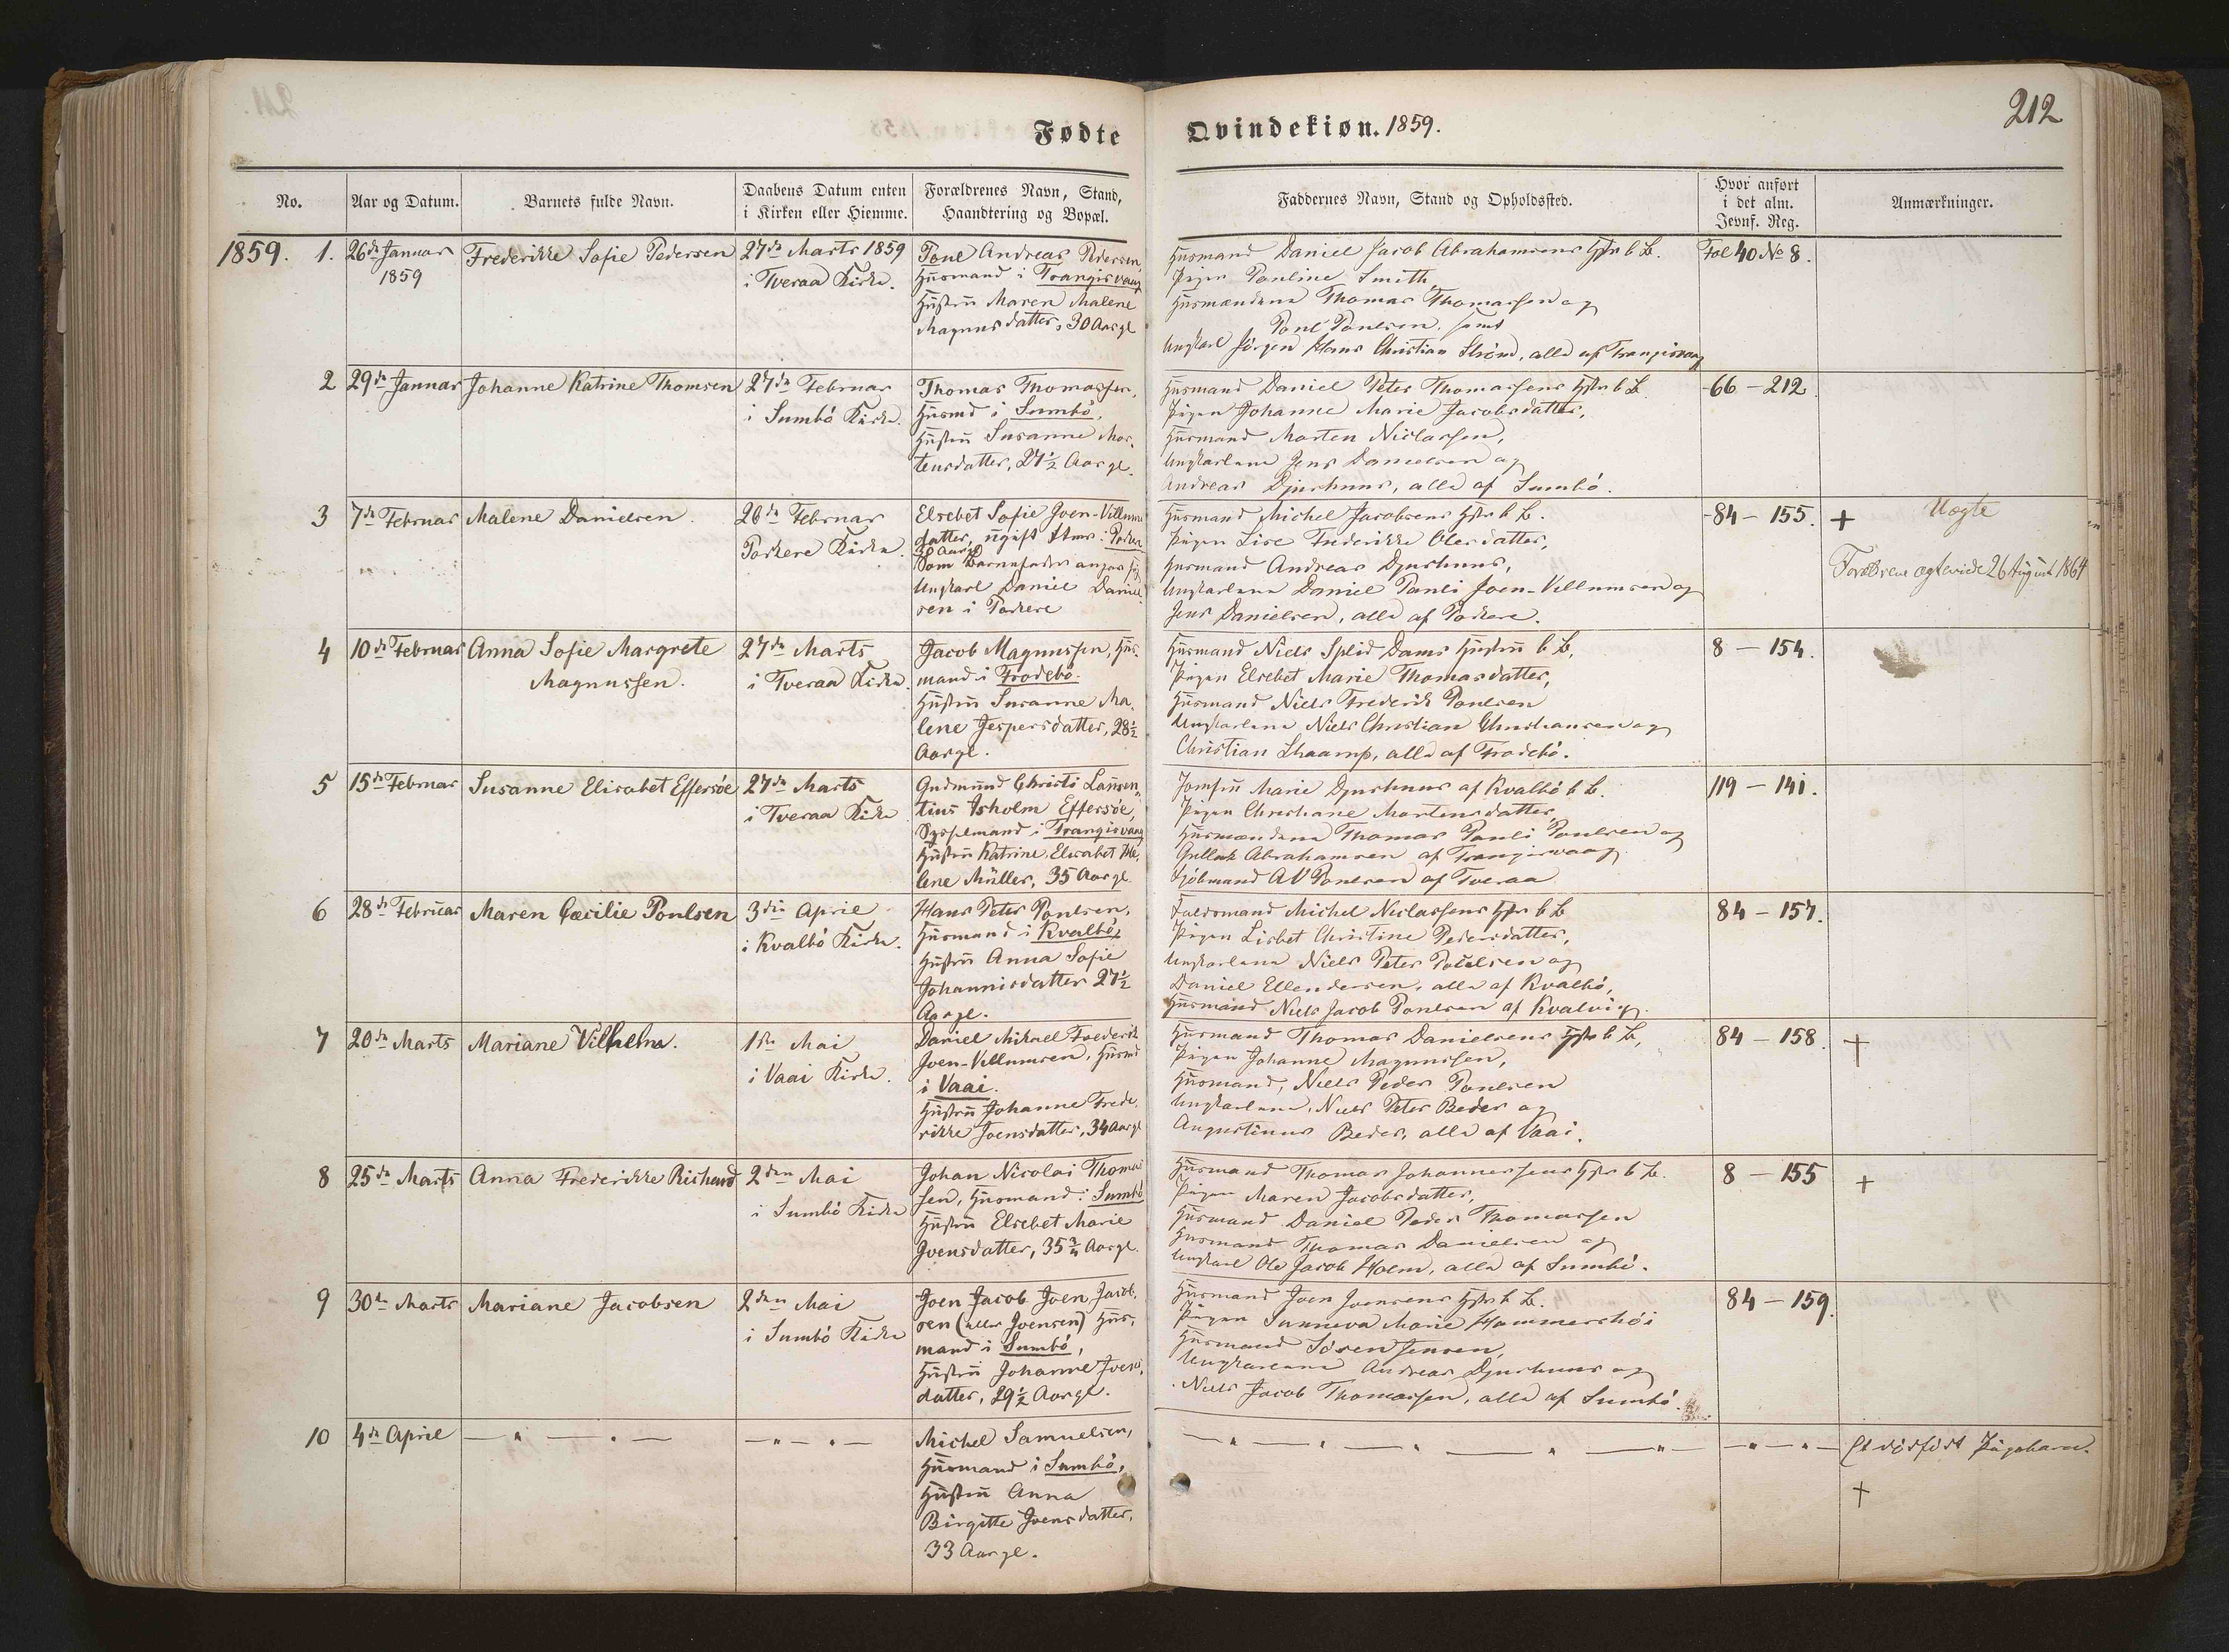 212
Fødte Qvindekiøn. 1859.
No.
Aar og Datum.
Barnets fulde Navn.
Daabens Datum enten
i Kirken eller Hiemme.
Forældrenes Navn, Stand,
Haandtering og Bopæl.
Faddernes Navn, Stand og Opholdssted.
Hvor anført
i det alm.
Jevnf. Reg.
Anmærkninger.
1859. 1.
26de Januar
1859
Frederikke Sofie Pedersen
27de Marts 1859
i Tveraa Kirke.
Poul Andreas Pedersen,
Huusmand i Trangisvaag
Hustru Maren Malene
Magnusdatter, 30 Aar gl
Husmand Daniel Jacob Abrahamsens Hstr b B.
Pigen Pauline Smith,
Husmændene Thomas Thomassen og
Poul Poulsen, samt
Ungkarl Jörgen Hans Christian Ström, alle af Trangisvaag
Fol 40 No 8.
2
29de Januar
Johanne Katrine Thomsen
27de Februar
i Sumbö Kirke.
Thomas Thomassen,
Husmd i Sumbö,
Hustru Susanne Mor-
tensdatter, 27½ Aar gl.
Husmand Daniel Peter Thomassens Hstr b B.
Pigen Johanne Marie Jacobsdatter,
Husmand Morten Niclassen,
Ungkarlene Jens Danielsen og
Andreas Djurhuus, alle af Sumbö.
-66 - 212.
3
7de Februar
Malene Danielsen.
26de Februar
Porkere Kirke.
Elsebet Sofie Joen-Villums
datter, ugift i Porkere
30 Aar gl
Som Barnefader angav sig
Ungkarl Daniel Daniel-
sen i Porkere
Husmand Michel Jacobsens Hstr b B.
Pigen Lise Frederikke Olesdatter,
Husmand Andreas Djurhuus,
Ungkarlene Daniel Pauli Joen-Villumsen og
Jens Danielsen, alle af Porkere.
-84 - 155.
+ Uægte
Forældrene ægteviede 26 August 1864
4
10de Februar
Anna Sofie Margrete
Magnussen.
27de Marts
i Tveraa Kirke.
Jacob Magnussen, Hus-
mand i Frodebö.
Hustru Susanne Ma-
lene Jespersdatter, 28½
Aar gl.
Husmand Niels Splid Dams Hustru b B,
Pigen Elsebet Marie Thomasdatter,
Husmand Niels Frederik Poulsen
Ungkarlene Niels Christian Christiansen og
Christian Skaamp, alle af Frodebö.
8 - 154.
5
15de Februar
Susanne Elisabet Effersöe
27de Marts
i Tveraa Kirke
Gudmund Christi Lauren-
tius Isholm Effersöe,
Sysselmand i Trangisvaag
Hustru Katrine Elisabet He-
lene Müller, 35 Aar gl.
Jomfru Marie Djurhuus af Kvalbö b B.
Pigen Christiane Mortensdatter,
Husmændene Thomas Pauli Poulsen og
Gullak Abrahamsen af Trangisvaag.
Kjöbmand A V Poulsen af Tveraa
119 - 141.
6
28de Februar
Maren Cæcilie Poulsen
3die April
i Kvalbö Kirke.
Hans Peter Poulsen,
Husmand i Kvalbö,
Hustru Anna Sofie
Johannisdatter 27½
Aar gl.
Michel Niclassens Hstr b B
Pigen Lisbet Christine Pedersdatter,
Ungkarlene Niels Peter Poulsen og
Daniel Ellendersen, alle af Kvalbö,
Husmand Niels Jacob Poulsen af Kvalvig.
84 - 157.
7
20de Marts
Mariane Vilhelm.
1ste Mai
i Vaai Kirke.
Daniel Mikael Frederik
Joen-Villumsen, Husmd
i Vaai.
Hustru Johanne Frede-
rikke Joensdatter, 34 Aar gl
Husmand Thomas Danielsens Hstr b B,
Pigen Johanne Magnussen,
Husmand, Niels Peder Poulsen
Ungkarlene, Niels Peter Beder og
Augustinus Beder, alle af Vaai.
84 - 158.
+
8
25de Marts
Anna Frederikke Richard
2den Mai
i Sumbö Kirke
Johan Nicolai Thomas
sen, Husmand i Sumbö
Hustru Elsebet Marie
Joensdatter, 35¾ Aar gl.
Husmand Thomas Johannessens Hstr b B.
Pigen Maren Jacobsdatter,
Husmand Daniel Peder Thomassen
Husmand Thomas Danielsen og
Ungkarl Ole Jacob Holm, alle af Sumbö.
8 - 155
+
9
30de Marts
Mariane Jacobsen
2den Mai
i Sumbö Kirke
Joen Jacob Joen Jacob-
sen (eller Joensen) Hus-
mand i Sumbö,
Hustru Johanne Joens-
datter, 29½ Aar gl.
Husmand Joen Joensens Hstr b B.
Pigen Sunneva Marie Hammershöi
Husmand Sören Jensen,
Ungkarlene Andreas Djurhuus og
Niels Jacob Thomassen, alle af Sumbö.
84 - 159.
10
4de April
Michel Samuelsen,
Husmand i Sumbö,
Hustru Anna
Birgitte Joensdatter,
33 Aar gl.
Et dödfödt Pigebarn.
+